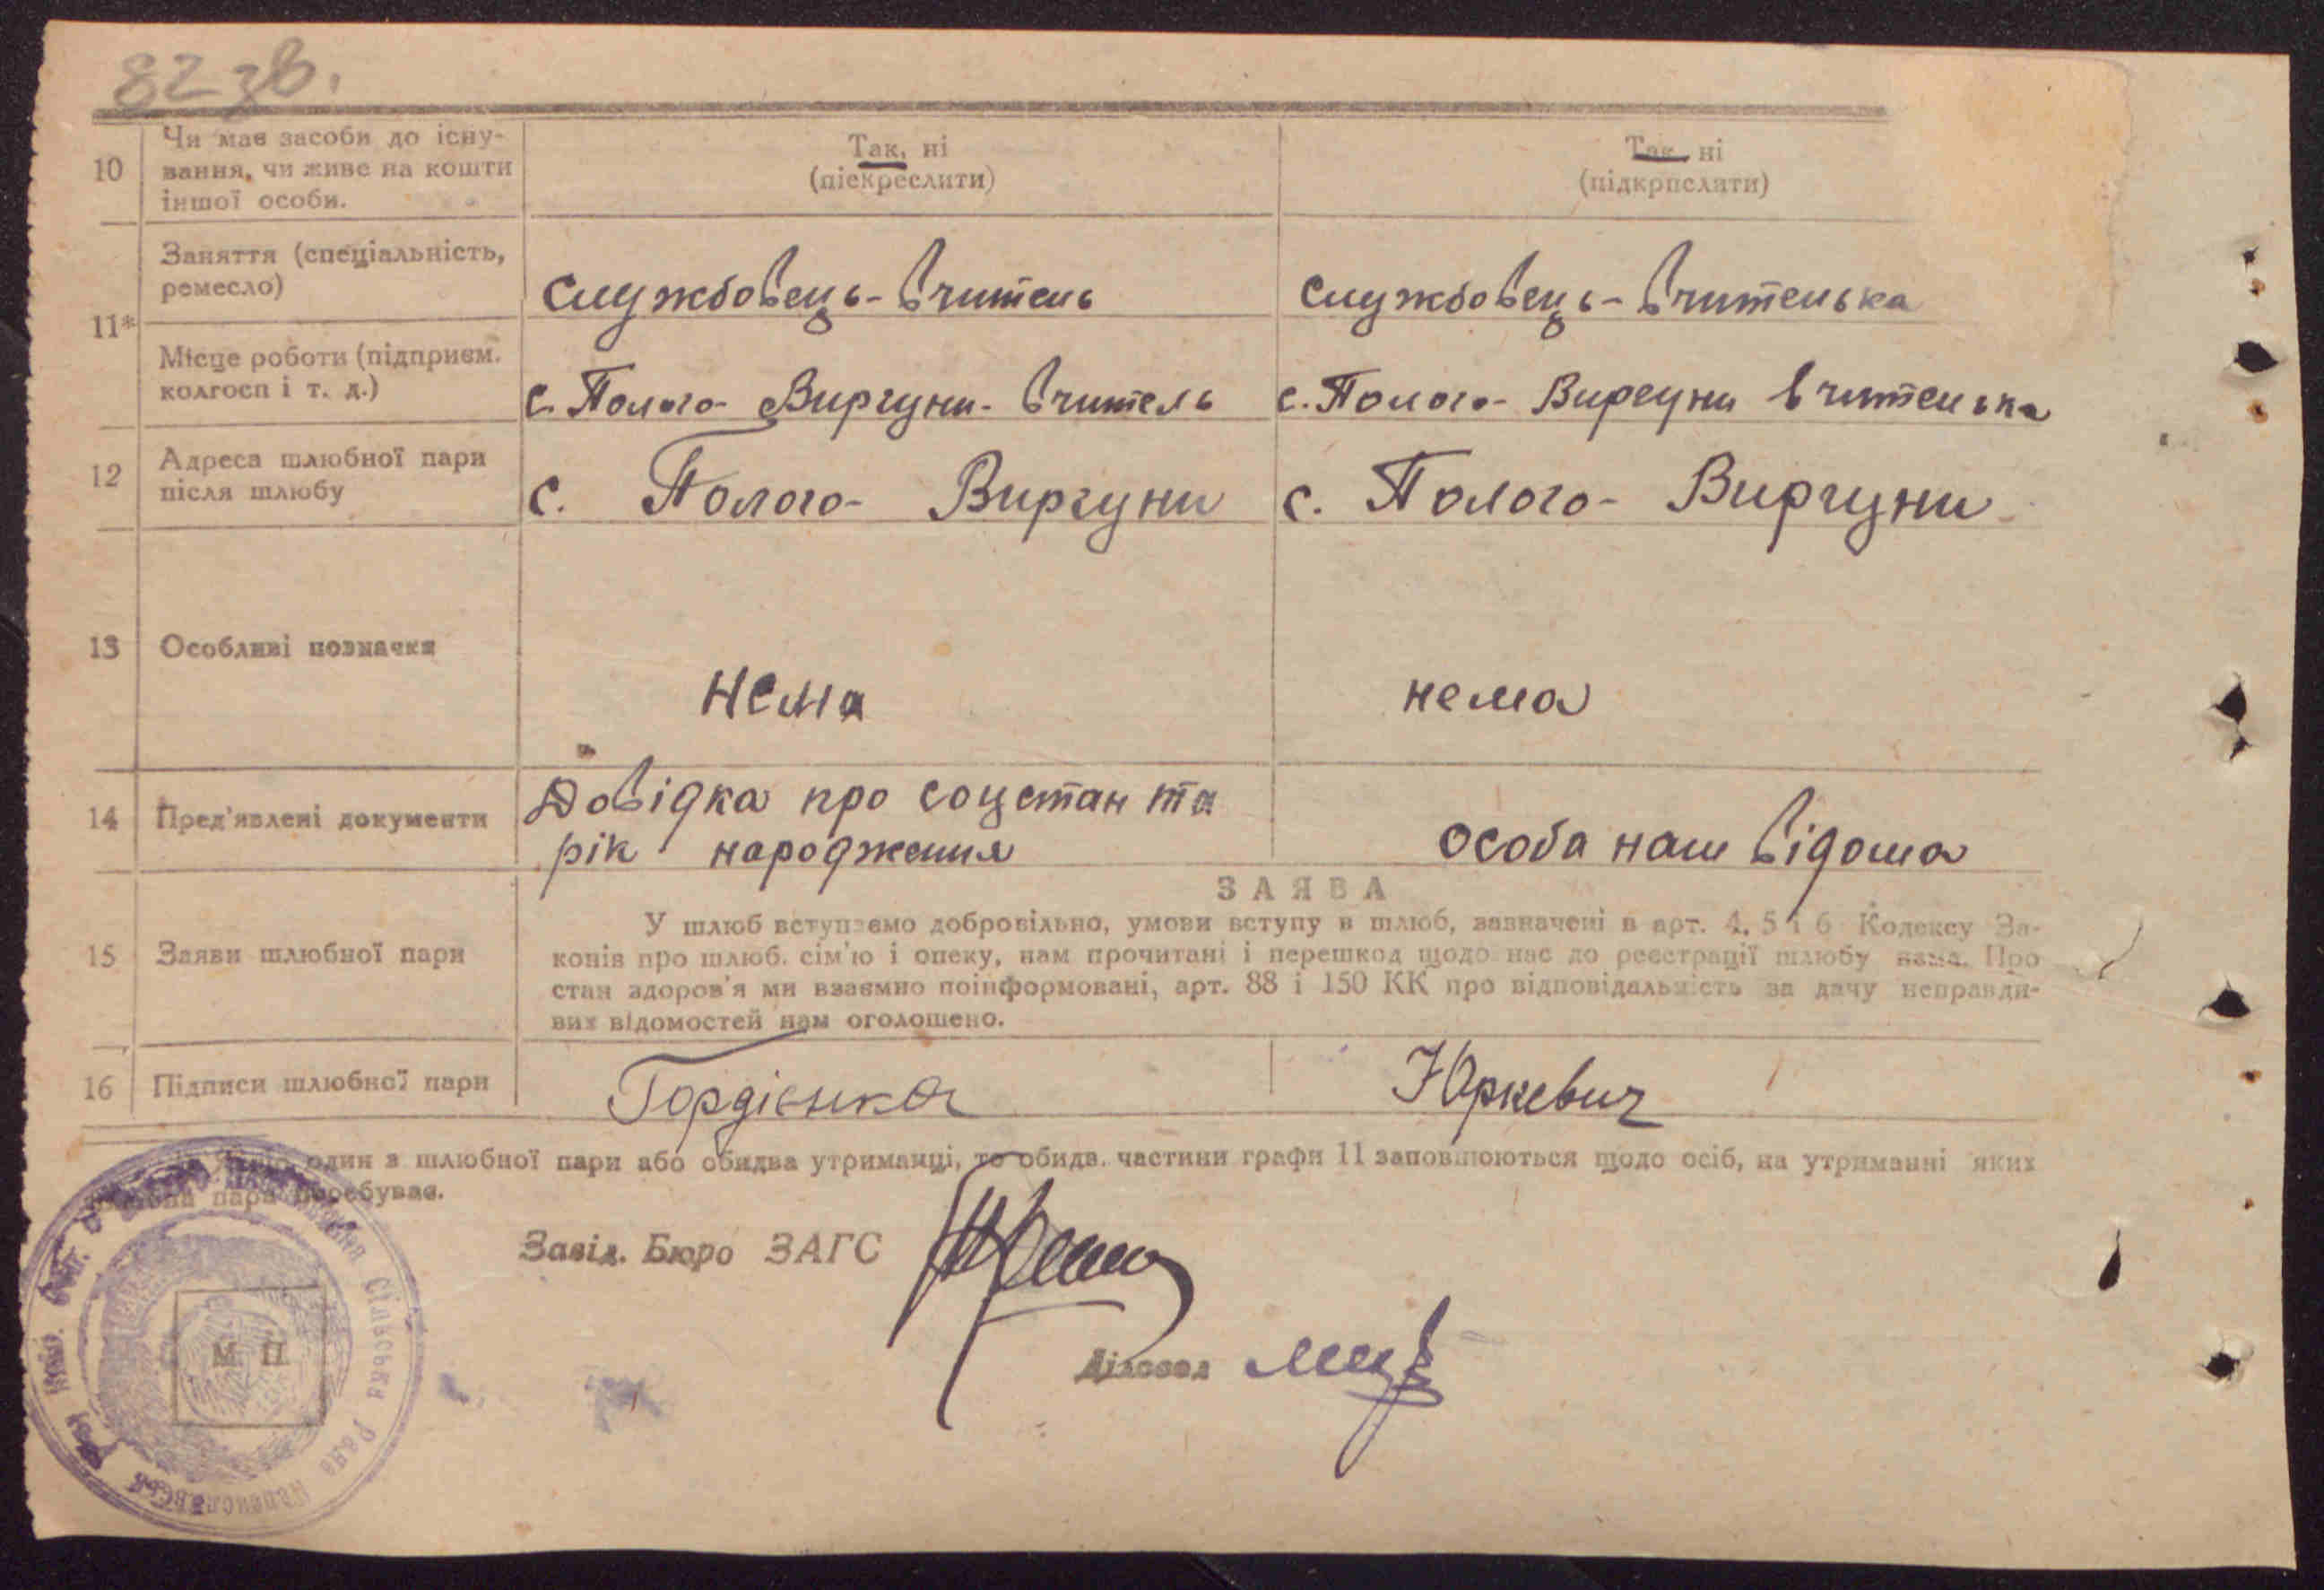 82 зв.
10 Чи має засоби до існу-
вання, чи живе на кошти
іншої особи.
Так, ні
(піскреслити)
Так ні
(підкрислити)
11*
Заняття (спеціальність,
ремесло)
Службовець-вчитель
Службовець-вчителька
Місце роботи (підприєм.
колгосп і т. д.)
с. Полого-Виргуни-вчитель
с. Полого-Виргуни вчителька
12 Адреса шлюбної пари
після шлюбу
с. Полого-Виргуни
с. Полого-Виргуни
13 Особливі позначки
нема
нема
14 Пред'явлені документи
Довідка про соцстан та
рік народження
особа нам відома
15 Заяви шлюбної пари
ЗАЯВА
У шлюб вступаємо добровільно, умови вступу в шлюб, зазначені в арт. 4, 5 і 6 Кодексу За-
конів про шлюб. сім'ю і опеку, нам прочитані і перешкод щодо нас до реєстрації шлюбу нема. Про
стан здоров'я ми взаємно поінформовані, арт. 88 і 150 КК про відповідальність за дачу неправди-
вих відомостей нам оголошено.
16 Підписи шлюбної пари
Гордієнко
Юркевич
один з шлюбної пари або обидва утриманці, то обидв. частини графи 11 заповнюються щодо осіб, на утриманні яких
пара перебуває.
Завід. Бюро ЗАГС
Діловод
М. П.
Сільська Рада